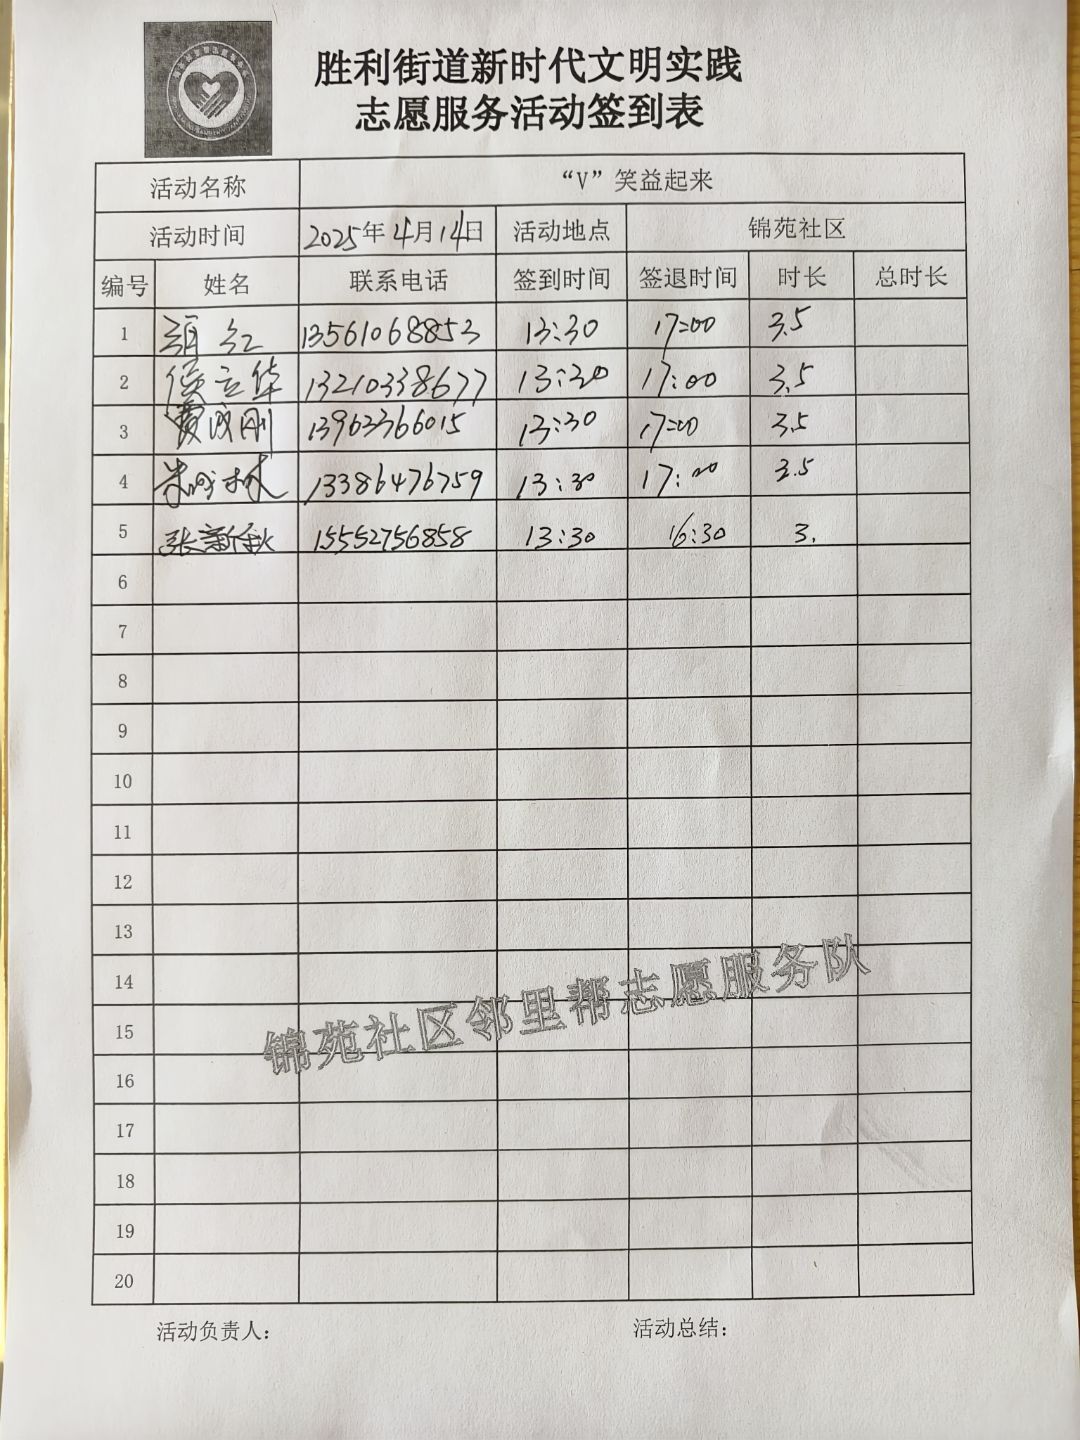 胜利街道新时代文明实践
志愿服务活动签到表
活动名称 “V”笑益起来
活动时间 2025年4月14日 活动地点 锦苑社区
编号 姓名 联系电话 签到时间 签退时间 时长 总时长
1 红 13561068853 13:30 17:00 3.5
2 侯立华 13210338677 13:30 17:00 3.5
3 黄成刚 13963366015 13:30 17:00 3.5
4 林 13386476759 13:30 17:00 3.5
5 张新秋 15552756858 13:30 16:30 3.
6
7
8
9
10
11
12
13
14
15
16
17
18
19
20
锦苑社区邻里帮志愿服务队
活动负责人： 活动总结：